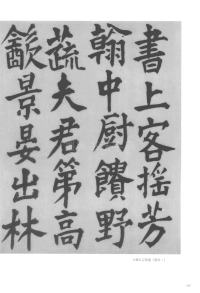 書上客摇芳
翰中厨饋野
蔬夫君第高
歠景晏出林